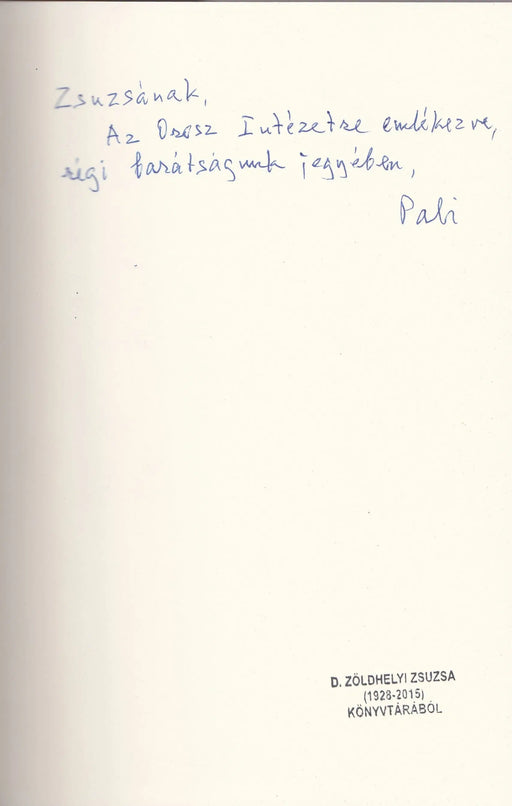 Zsuzsának,
Az Orosz Intézetre emlékezve,
régi barátságunk jegyében,
Pali
D. ZÖLDHELYI ZSUZSA
(1928-2015)
KÖNYVTÁRÁBÓL